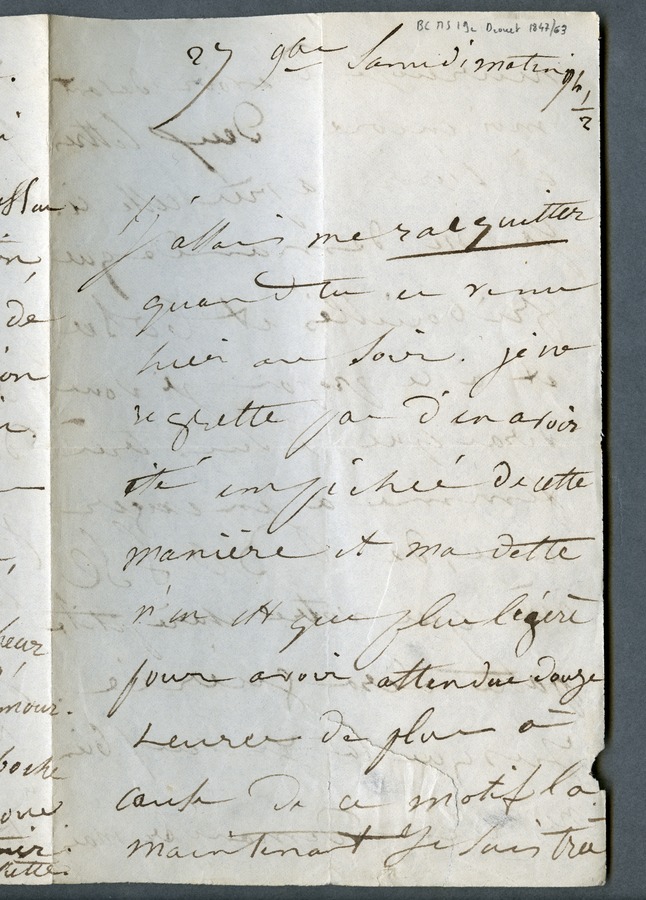 BC MS 19c Drouet 1847/63
27 9bre Samedi matin 9h 1/2
J'allais me racquitter
quand tu es venu
hier au soir. je ne
regrette pas d'en avoir
été empêchée de cette
manière et ma dette
n'en est que plus légère
pour avoir attendue douze
heures de plus à
cause de ce motif là.
maintenant je suis très
de
mour.